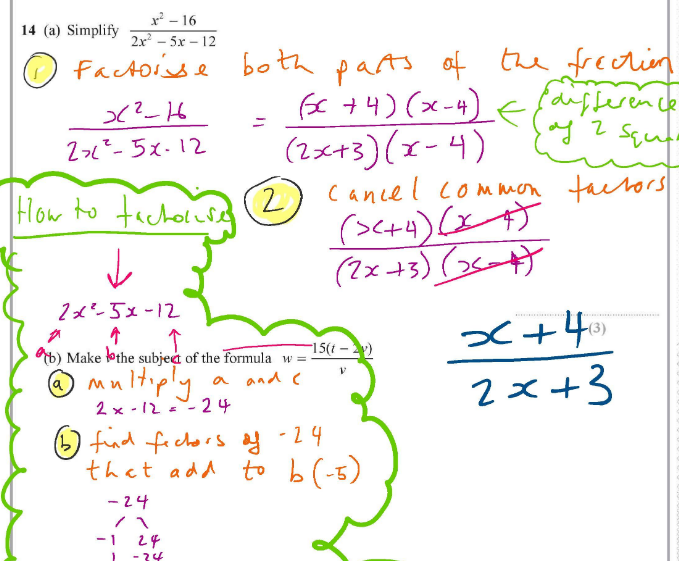 14 (a) Simplify (x² − 16)/(2x² − 5x − 12)
1 Factorise both parts of the fraction
(x² − 16)/(2x² − 5x − 12) = ((x + 4)(x − 4))/((2x + 3)(x − 4)) ← difference of 2
How to factorise
2 cancel common factors
((x + 4)(x − 4))/((2x + 3)(x − 4))
2x² − 5x − 12
a b c
(x + 4)/(2x + 3)
(3)
(b) Make the subject of the formula w = 15(t − 2v)/v
a multiply a and c
2 x -12 = -24
b find factors of -24
that add to b (-5)
-24
-1 24
1 -24